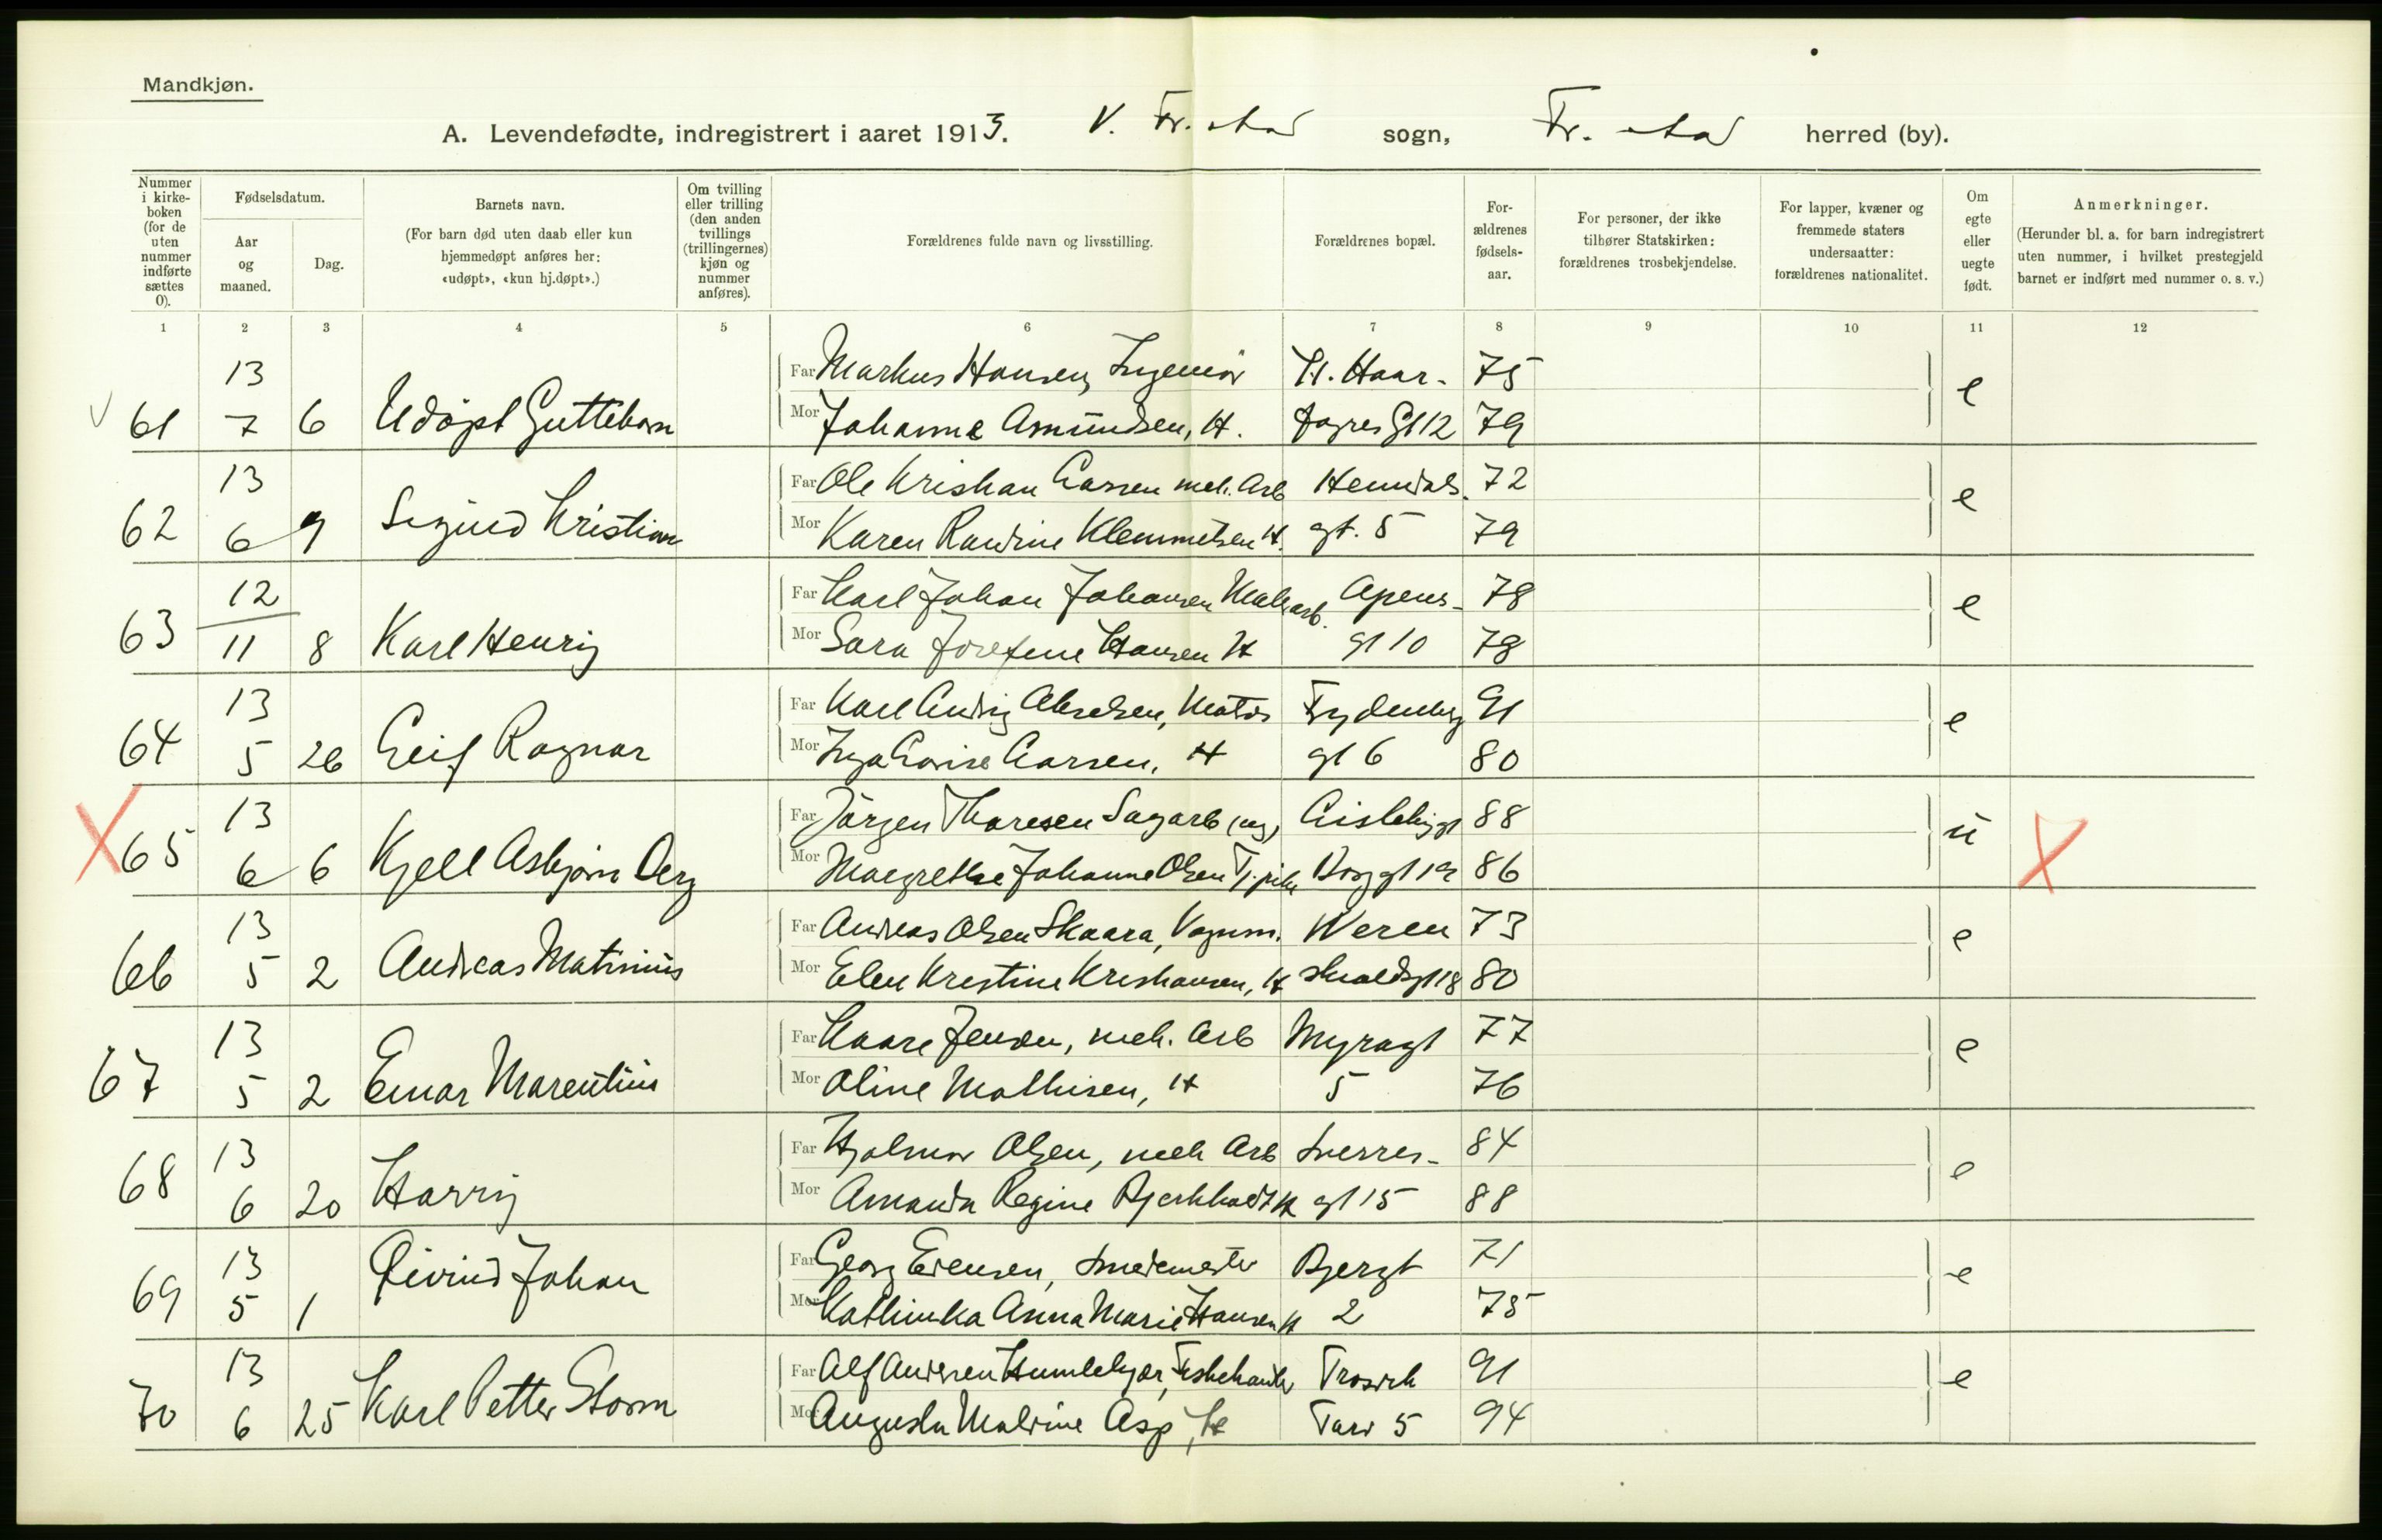 Mandkjøn.
A. Levendefødte, indregistrert i aaret 1913. V. Fr.stad sogn, Fr.stad herred (by).
Nummer i kirke-boken (for de uten nummer indførte sættes 0).
Fødselsdatum.
Aar og maaned.
Dag.
Barnets navn.
(For barn død uten daab eller kun hjemmedøpt anføres her: «udøpt», «kun hj.døpt».)
Om tvilling eller trilling (den anden tvillings (trillingernes) kjøn og nummer anføres).
Forældrenes fulde navn og livsstilling.
Forældrenes bopæl.
For-ældrenes fødsels-aar.
For personer, der ikke tilhører Statskirken: forældrenes trosbekjendelse.
For lapper, kvæner og fremmede staters undersaatter: forældrenes nationalitet.
Om egte eller uegte født.
Anmerkninger.
(Herunder bl. a. for barn indregistrert uten nummer, i hvilket prestegjeld barnet er indført med nummer o. s. v.)
1 2 3 4 5 6 7 8 9 10 11 12
13 Far Markus Hansen, Ingeniør H. Haar- 75 e
61 7 6 Udøpt Guttebarn Mor Johanne Amundsen, H. fagres Gt 12 79
13 Far Ole Kristian Larsen mek. Arb Hemdals. 72 e
62 6 9 Sigurd Kristian Mor Karen Randine Klemmetsen H. gt. 5 79
12 Far Karl Johan Johansen 78 e
63 11 8 Karl Henrij Mor Sara Josefine Hansen H gt 10 78
13 Far Karl Ludvig Abrahsen, Matos 91 e
64 5 26 Leif Ragnar Mor Inga Lovise Larsen, H gt 6 80
13 Far Jørgen Thoresen Sagarb (ug) 88 u
65 6 6 Kjell Asbjørn Mor Margrethe Johanne Olsen Tj.pike Borggt 19 86
13 Far Andreas Olsen Skaara, Vognm. Weren 73 e
66 5 2 Andreas Matinius Mor Elen Kristine Kristiansen, H skioldsgt 18 80
13 Far Kaare Jensen, mek. Arb Myragt 77 e
67 5 2 Einar Marentius Mor Oline Mathisen, H 5 76
13 Far Hjalmar Olsen, mek Arb Sverres- 84 e
68 6 20 Harry Mor Amanda Regine Bjerkholdt H gt 15 88
13 Far Georg Evensen, Smedemester Bjergt 71 e
69 5 1 Øivind Johan Mor Kathinka Anna Marie Hansen H 2 75
13 Far Alf Andersen Humlekjær, Fiskehandler Trosvik 91 e
70 6 25 Karl Petter Storm Mor Augusta Malvine Asp, H Tarv 5 94